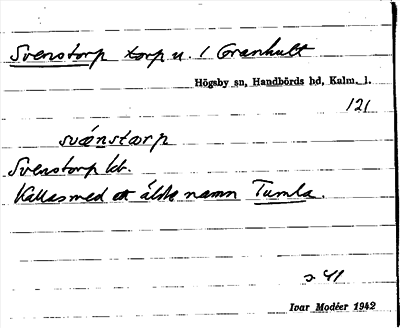 Svenstorp torp u. 1 Granhult
Högsby sn, Handbörds hd, Kalm. l.
121
svǽnstærp
Svenstorp kb.
Kallas med ett äldre namn Tumla.
s 41
Ivar Modéer 1942